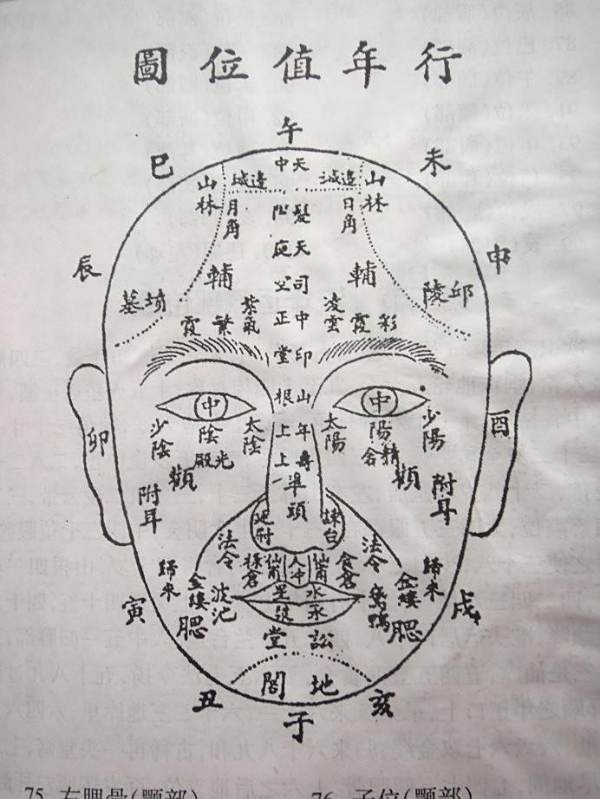 行年值位圖
午
巳
未
天中
邊城
邊城
山林
山林
月角
日角
辰
申
天庭
司空
中正
輔
輔
墳墓
邱陵
紫氣
繁霞
凌雲
彩霞
印堂
山根
中
中
卯
酉
少陰
中陰
太陰
太陽
中陽
少陽
年上
壽上
光殿
精舍
顴
顴
準頭
附耳
附耳
廷尉
蘭台
法令
法令
人中
食倉
歸來
歸來
金縷
金縷
波池
鵝鴨
水星
承漿
寅
戌
腮
腮
訟堂
地閣
丑
亥
子
76. 子位(颚部)